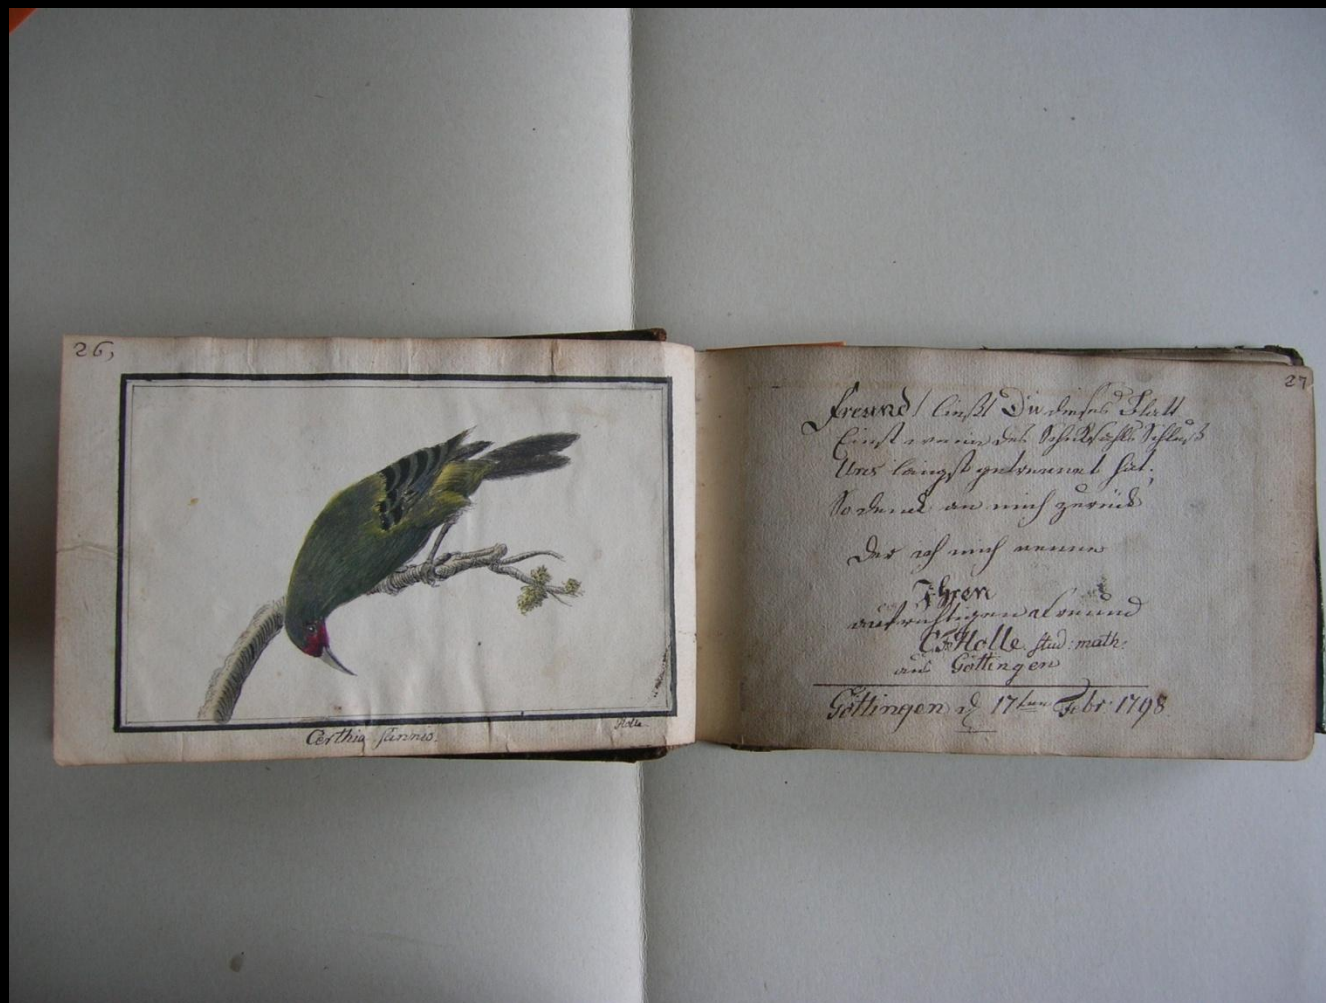 26,
Certhia
Holle
27
Freund! ließt Du dieses Blatt
Einst wenn des Schicksahls Schluß
Uns längst getrennet hat;
So denk an mich zurück
Der ich mich nenne
Ihren
aufrichtigen Freund
C. F. Holle stud: math:
aus Göttingen
Göttingen d 17ten Febr. 1798